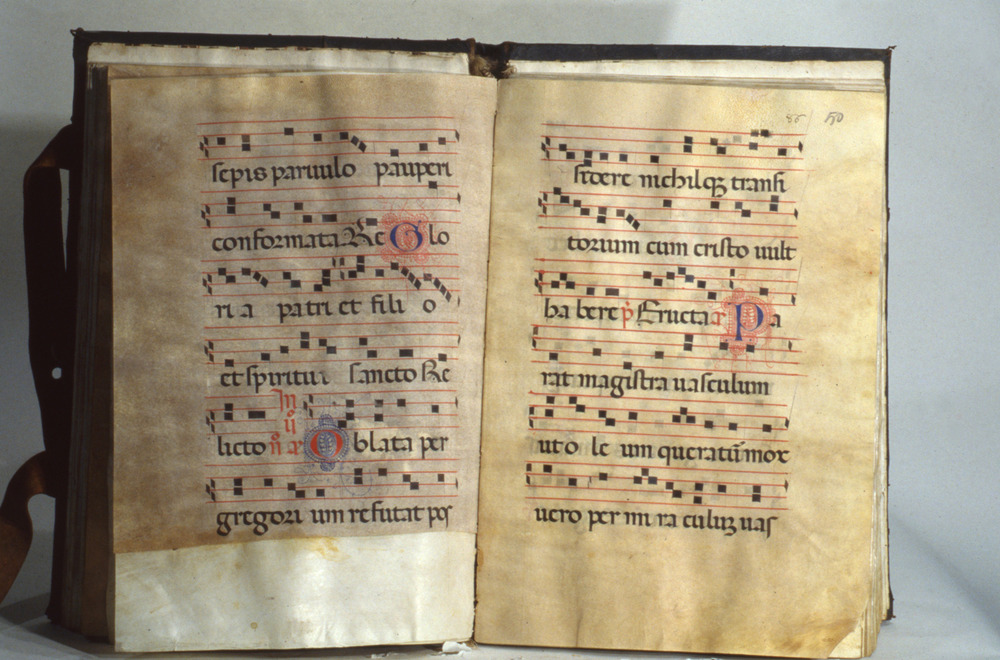 sepis paruulo pauperi
conformata Re Glo
ri a patri et fili o
et spiritui sancto Re
licto In ii
no a Oblata per
gregori um refutat pos
86 / 50
sidere nichilqz transi
torium cum cristo uult
ha bere p̄ Eructa a Pa
rat magistra uasculum
ut o le um queratū mox
uero per mi ra culuz uas